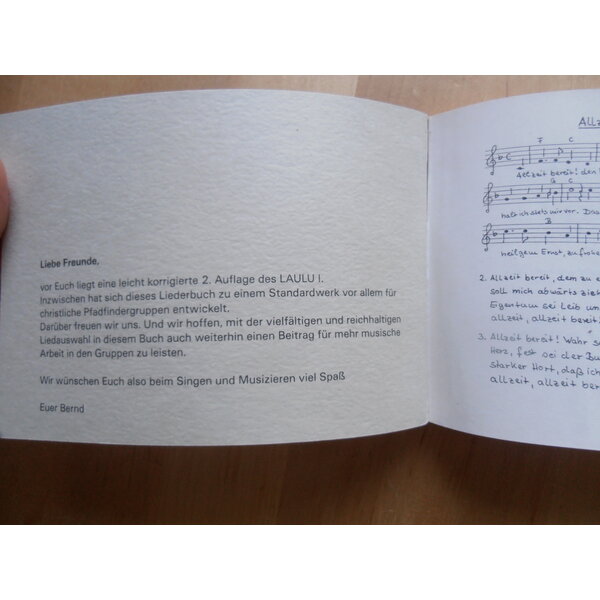 Liebe Freunde,
vor Euch liegt eine leicht korrigierte 2. Auflage des LAULU I.
Inzwischen hat sich dieses Liederbuch zu einem Standardwerk vor allem für
christliche Pfadfindergruppen entwickelt.
Darüber freuen wir uns. Und wir hoffen, mit der vielfältigen und reichhaltigen
Liedauswahl in diesem Buch auch weiterhin einen Beitrag für mehr musische
Arbeit in den Gruppen zu leisten.
Wir wünschen Euch also beim Singen und Musizieren viel Spaß
Euer Bernd
Allz
F C
Allzeit bereit! den
G C
halt ich stets mir vor. Das
B
heilgem Ernst, zu frohe
2. Allzeit bereit, dem zu e
soll mich abwärts zieh
Eigentum sei Leib un
allzeit, allzeit bereit!
3. Allzeit bereit! Wahr s
Herz, fest sei der Bu
starker Hort, daß ich
allzeit, allzeit ber